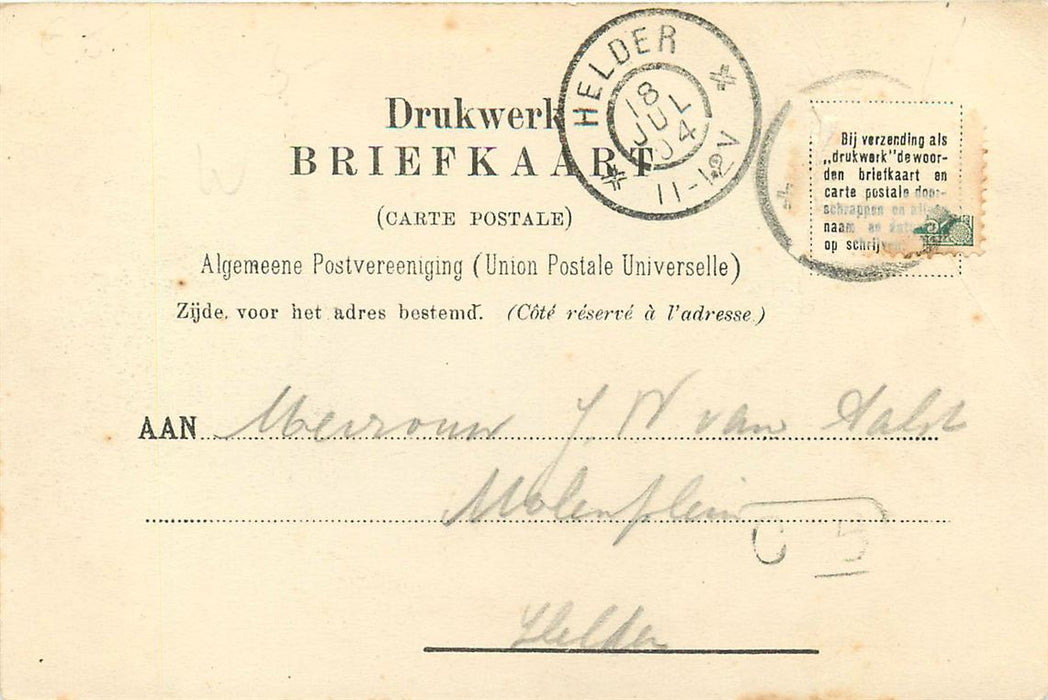 HELDER
18
JUL
04
11-12V
Drukwerk
BRIEFKAART
(CARTE POSTALE)
Algemeene Postvereeniging (Union Postale Universelle)
Zijde voor het adres bestemd. (Côté réservé à l'adresse.)
Bij verzending als
„drukwerk" de woor-
den briefkaart en
carte postale door-
schrappen en
naam en
op schrijven.
AAN Mevrouw J. W van Aalst
Molenplein
C 5
Helder